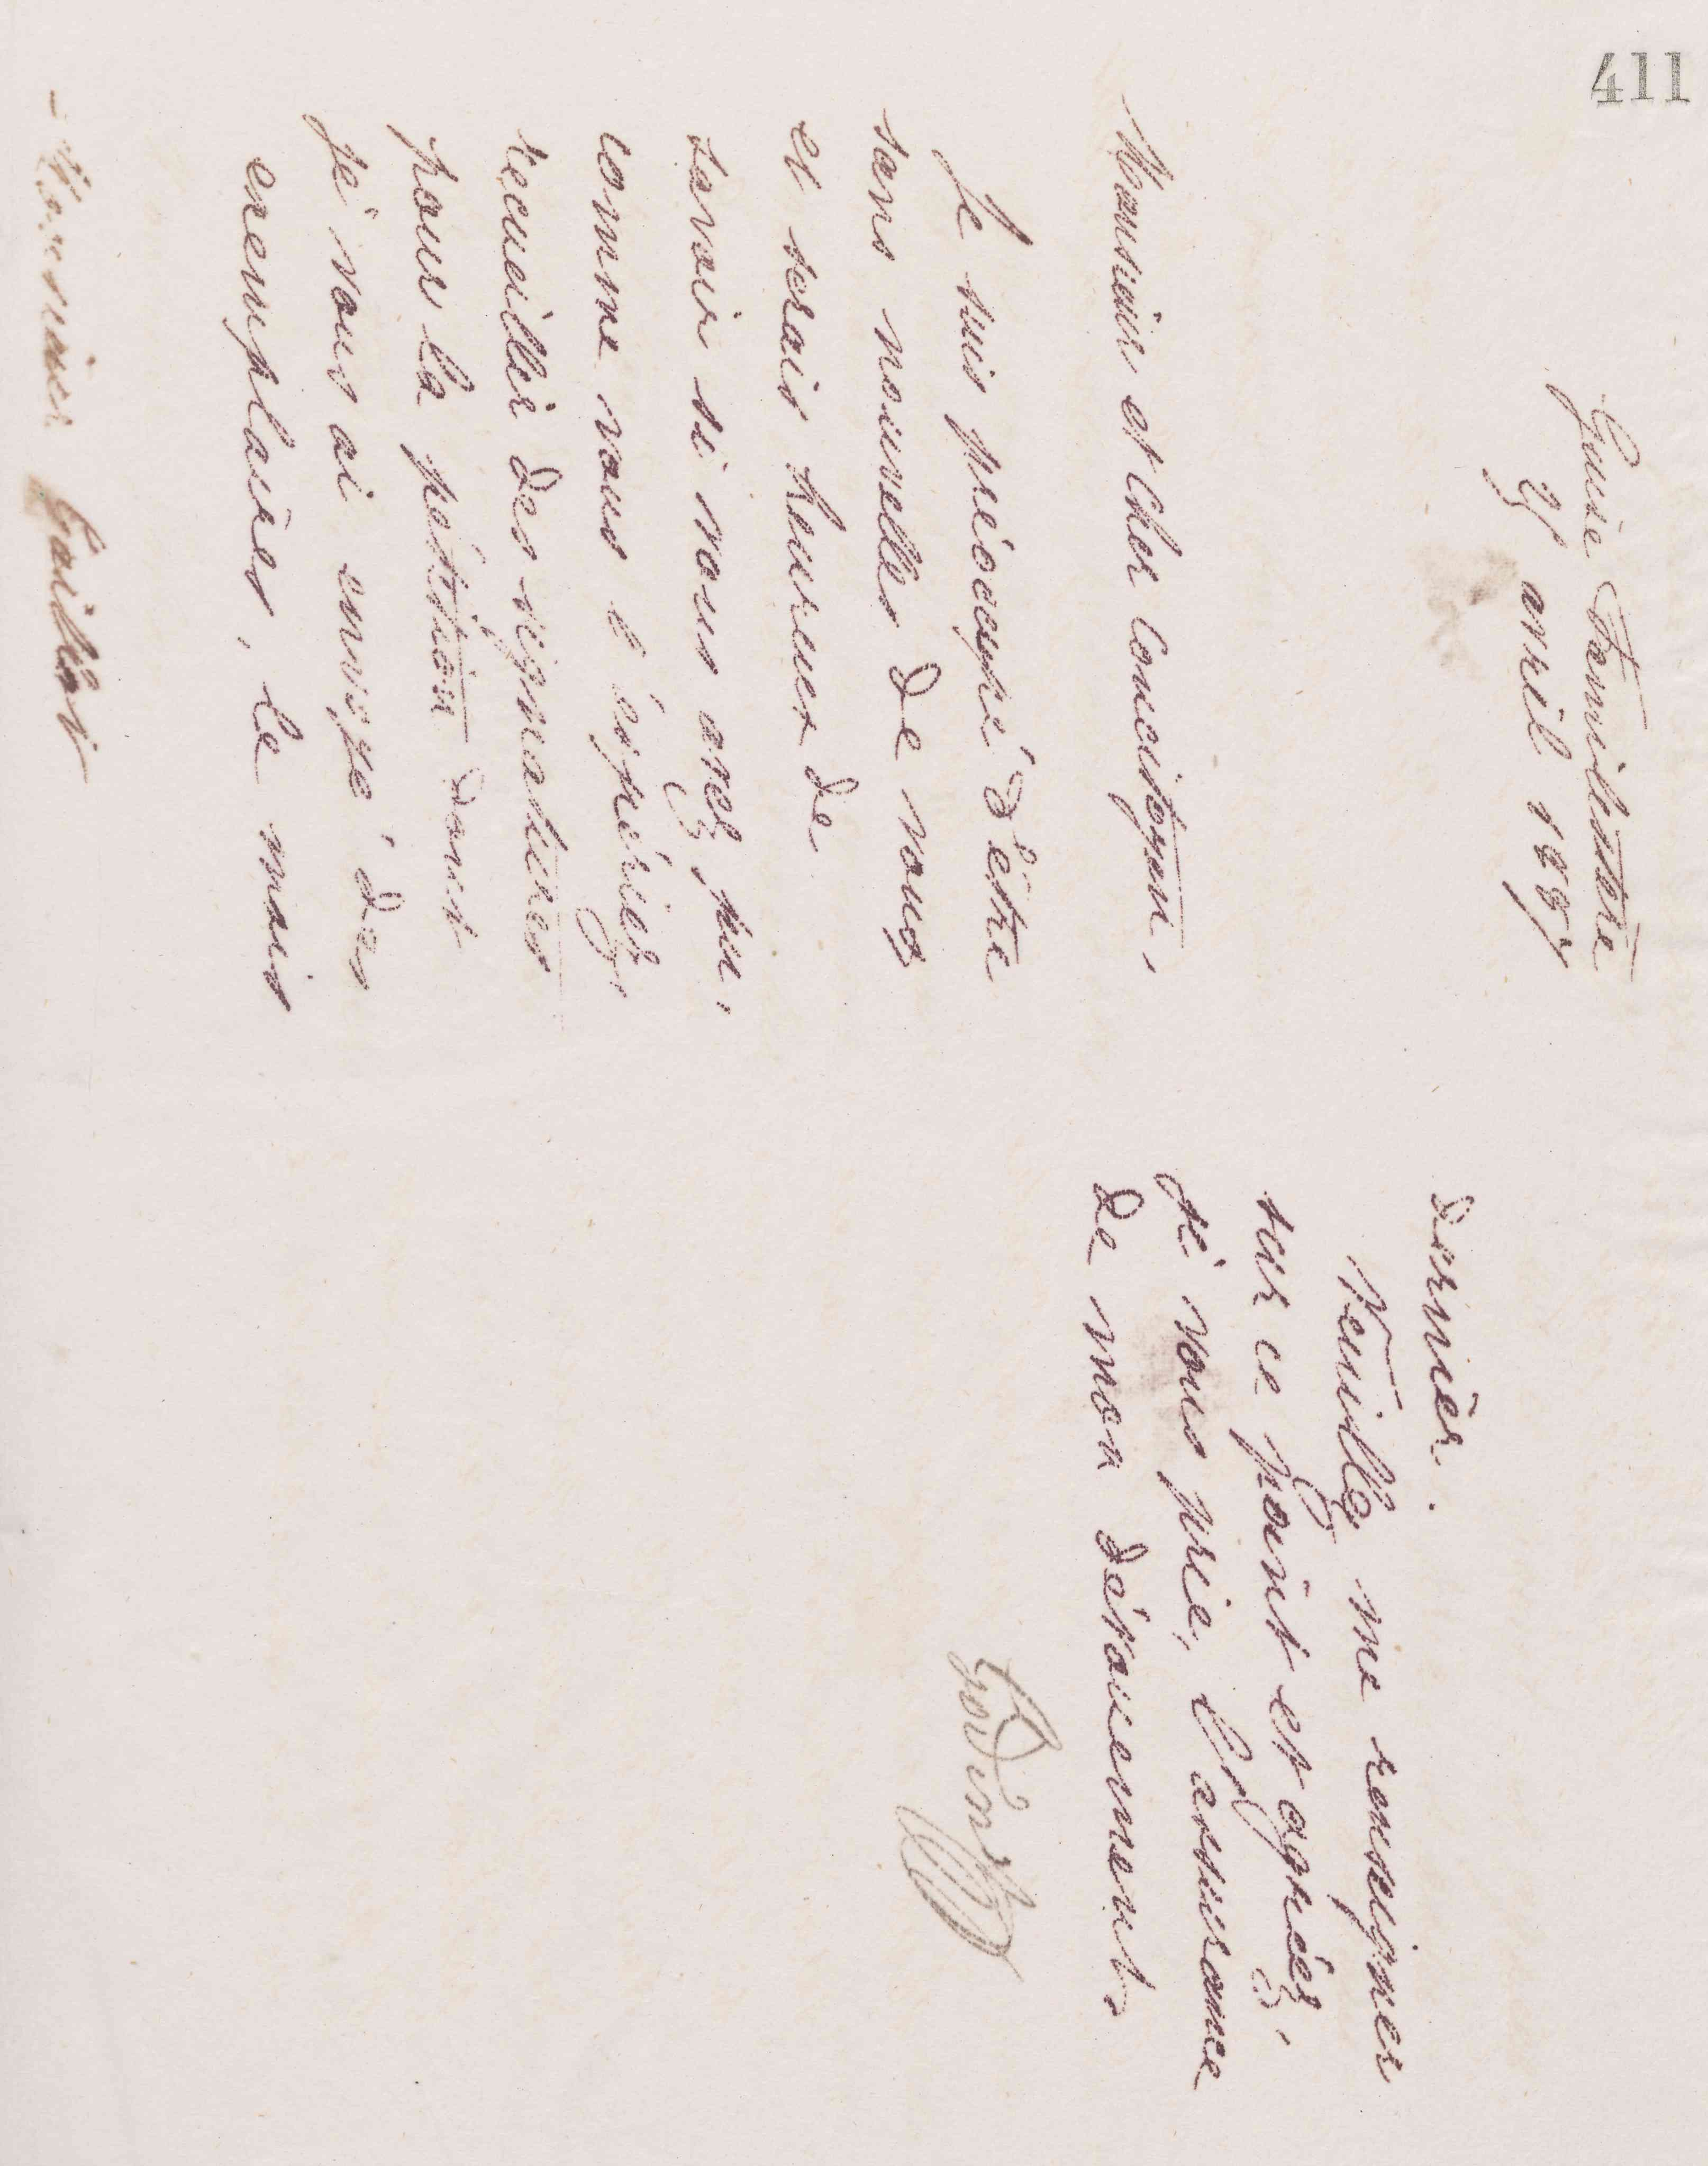 411
Guise Familistère
4 avril 1887
Monsieur et cher concitoyen,
Je suis préoccupé d'être
sans nouvelles de vous
et serais heureux de
savoir si vous avez pu,
comme vous l'espériez,
recueillir des signatures
pour la pétition dont
je vous ai envoyé des
exemplaires, le mois
Monsieur
dernier.
Veuillez me renseigner
sur ce point et agréez,
je vous prie, l'assurance
de mon dévouement.
Godin